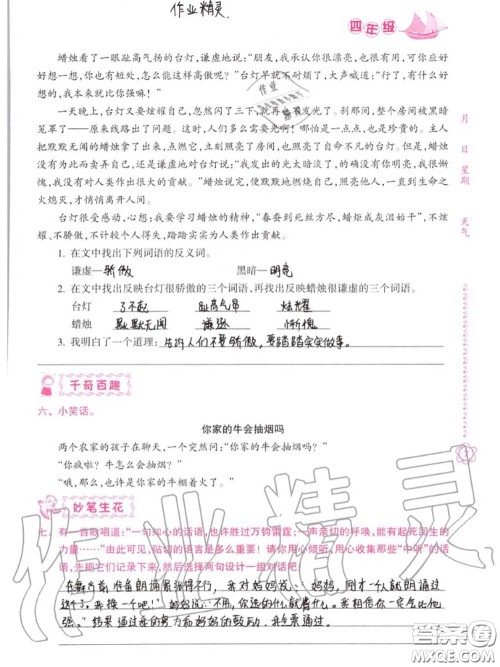 作业精灵.
四年级
蜡烛看了一眼趾高气扬的台灯,谦虚地说:“朋友,我承认你很漂亮,也很有用,可你应好
好想一想,你也有短处,怎么能这样高傲呢?”台灯早就不耐烦了,大声喊道:“行了,有什么好
想的,我本来就比你强嘛!”
一天晚上,台灯又要炫耀自己,忽然闪了三下,就再也不发光了。刹那间,整个房间被黑暗
笼罩了——原来线路出了问题。这时,人们多么需要光明啊!哪怕是一点点,也是珍贵的。主人
把默默无闻的蜡烛拿了出来,点燃它,立刻照亮了房间,也照亮了自命不凡的台灯。但是,蜡烛
没有为此而卖弄自己,还是谦虚地对台灯说:“我发出的光太暗淡了,的确没有你明亮,我很惭
愧,我没有对人类作出很大的贡献。”蜡烛说完,便默默地燃烧自己,照亮他人,一直到生命之
火熄灭,才悄悄离开人间。
台灯很受感动,心想:我要学习蜡烛的精神,“春蚕到死丝方尽,蜡炬成灰泪始干”,不炫
耀、不骄傲、不计较个人得失,踏踏实实为人类作出贡献。
1. 在文中找出下列词语的反义词。
谦虚—骄傲 黑暗—明亮
2. 在文中找出反映台灯很骄傲的三个词语,再找出反映蜡烛很谦虚的三个词语。
台灯 了不起 趾高气昂 炫耀
蜡烛 默默无闻 谦逊 惭愧
3. 我明白了一个道理:告诉人们不要骄傲,要踏踏实实做事。
月 日 星期 天气
千奇百趣
六、小笑话。
你家的牛会抽烟吗
两个农家的孩子在聊天,一个突然问:“你家的牛会抽烟吗?”
“你疯啦?牛怎么会抽烟?”
“哦,那么,也许是你家的牛棚着火了。”
妙笔生花
七、有一首歌唱道:“一句知心的话语,也许胜过万钧雷霆;一声亲切的呼唤,能有起死回生的
力量……”由此可见,贴切的语言是多么重要!请你用心倾听,用心收集那些“中听”的话
语,先把它们记录下来,然后选择两句设计一组对话吧!
我对妈妈说:“妈妈,刚才一个人就朗诵过
这个了。我换一个吧!”妈妈说:“不用,你选的什么就背什么。我相信你一定会比他
强。”结果通过我的努力和妈妈的鼓励,
作业精灵